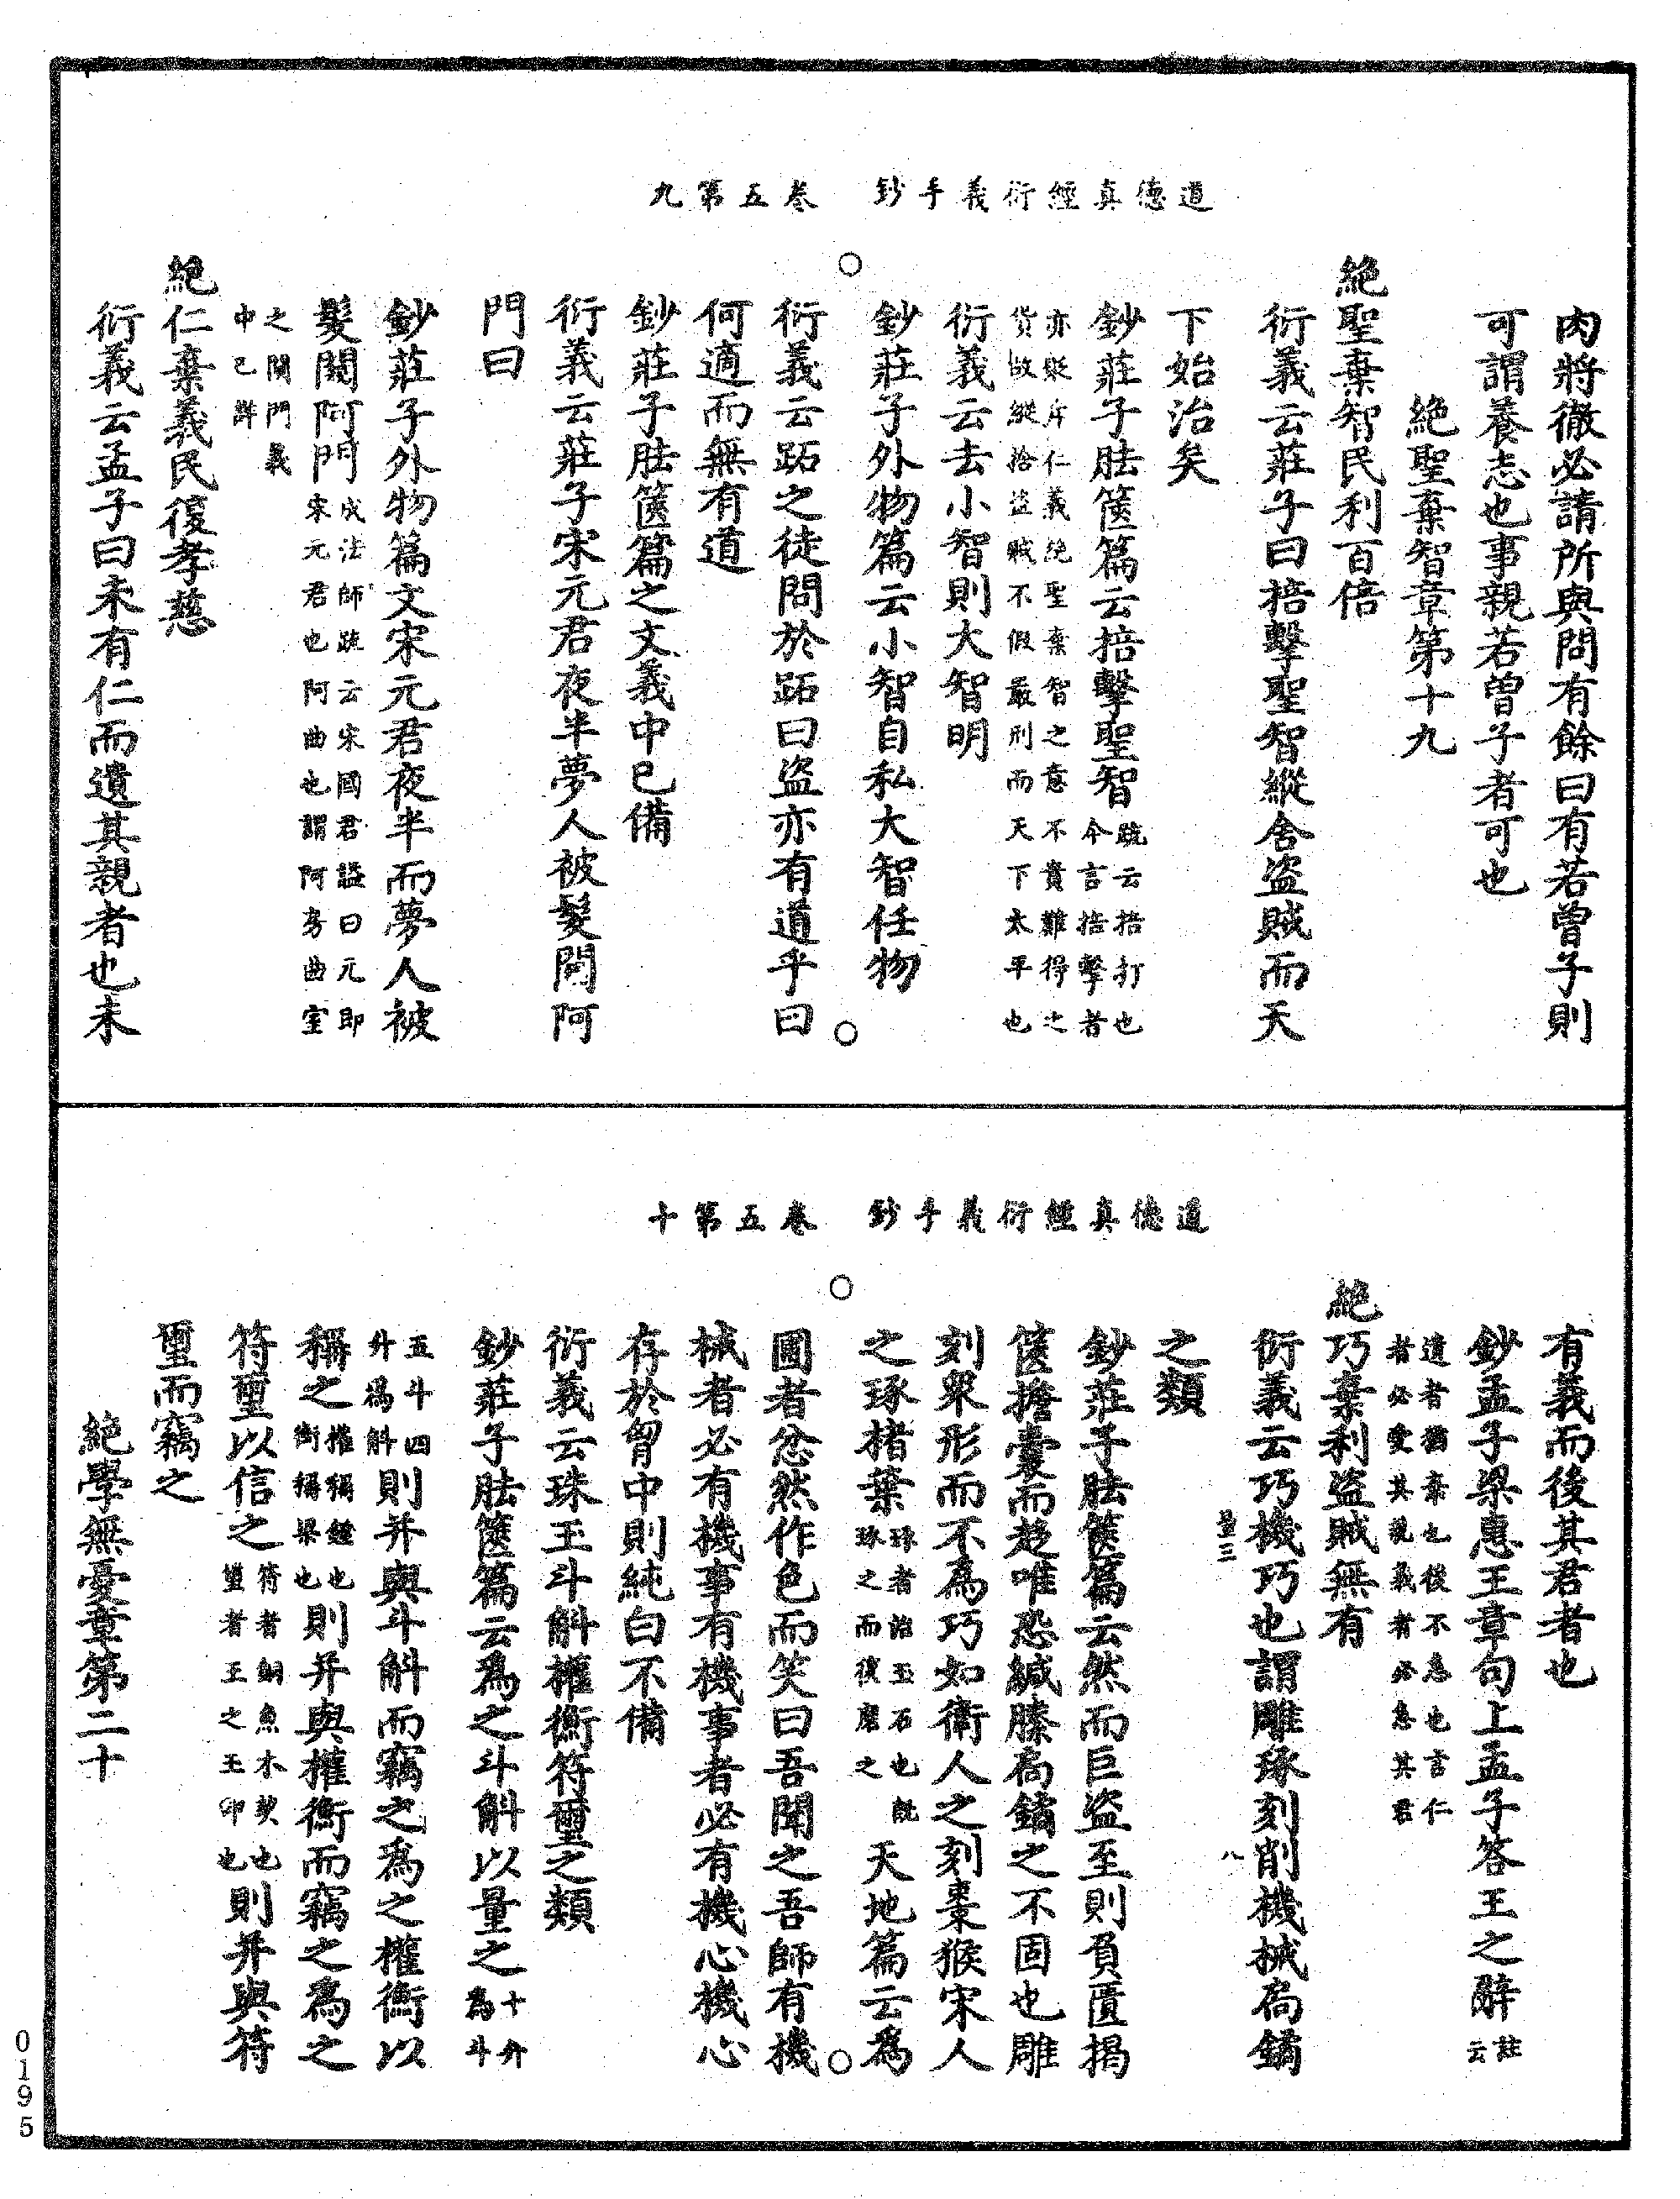 道德真經衍義手鈔　卷五第九
肉將徹必請所與問有餘曰有若曾子則
可謂養志也事親若曾子者可也
絶聖棄智章第十九
絶聖棄智民利百倍
衍義云莊子曰掊擊聖智縱舍盜賊而天
下始治矣
鈔莊子胠篋篇云掊擊聖智疏云掊打也今言掊擊者
亦貶斥仁義絶聖棄智之意不貴難得之
貨故縱捨盜賊不假嚴刑而天下太平也
衍義云去小智則大智明
鈔莊子外物篇云小智自私大智任物
衍義云跖之徒問於跖曰盜亦有道乎曰
何適而無有道
鈔莊子胠篋篇之文義中已備
衍義云莊子宋元君夜半夢人被髮闚阿
門曰
鈔莊子外物篇文宋元君夜半而夢人被
髮闚阿門成法師疏云宋國君謚曰元即宋元君也阿曲也謂阿旁曲室
之闚門義
中已詳
絶仁棄義民復孝慈
衍義云孟子曰未有仁而遺其親者也未
道德真經衍義手鈔　卷五第十
有義而後其君者也
鈔孟子梁惠王章句上孟子答王之辭註云
遺者猶棄也後不急也言仁
者必愛其親義者必急其君
絶巧棄利盜賊無有
衍義云巧機巧也謂雕琢刻削機械扃鐍
量三　八
之類
鈔莊子胠篋篇云然而巨盜至則負匱揭
篋擔囊而趍唯恐緘縢扃鐍之不固也雕
刻衆形而不為巧如衛人之刻棗猴宋人
之琢楮葉琢者治玉石也既琢之而復磨之天地篇云為
圃者忿然作色而笑曰吾聞之吾師有機
械者必有機事有機事者必有機心機心
存於胷中則純白不備
衍義云珠玉斗斛權衡符璽之類
鈔莊子胠篋篇云為之斗斛以量之十升為斗
五斗四升為斛則并與斗斛而竊之為之權衡以
稱之權稱鎚也衡稱梁也則并與權衡而竊之為之
符璽以信之符者銅魚木契也璽者王之玉印也則并與符
璽而竊之
絶學無憂章第二十
0195